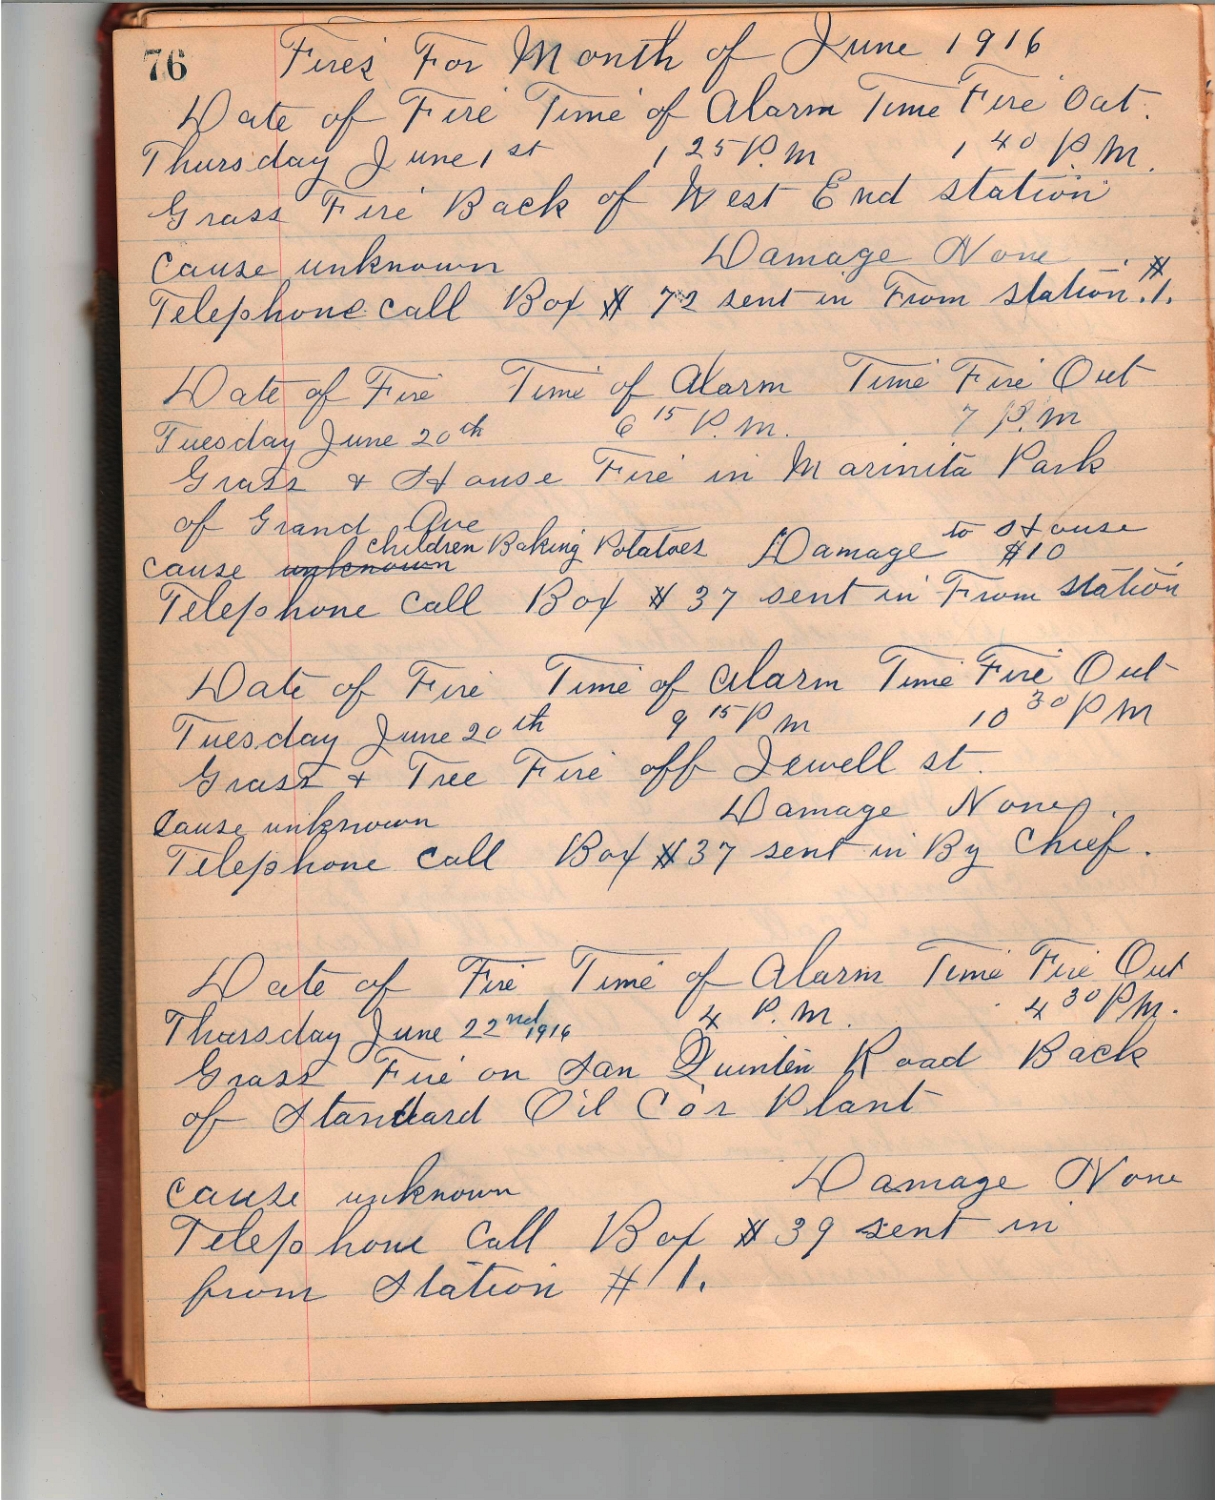 76 Fires For Month of June 1916
Date of Fire Time of Alarm Time Fire Out.
Thursday June 1st 1 25 P.M 1 40 P.M.
Grass Fire Back of West End station
Cause unknown Damage None
Telephone call Box # 72 sent in From station # 1.
Date of Fire Time of Alarm Time Fire Out
Tuesday June 20th 6 15 P.M. 7 P.M
Grass & House Fire in Marinita Park
of Grand Ave
cause unknown children Baking Potatoes Damage to House $10
Telephone Call Box # 37 sent in From station
Date of Fire Time of Alarm Time Fire Out
Tuesday June 20th 9 15 P M 10 30 P M
Grass & Tree Fire off Jewell st.
Cause unknown Damage None
Telephone Call Box # 37 sent in By Chief.
Date of Fire Time of Alarm Time Fire Out
Thursday June 22nd 1916 4 P.M. 4 30 P M.
Grass Fire on San Quintin Road Back
of Standard Oil Co's Plant
Cause unknown Damage None
Telephone Call Box # 39 sent in
from Station # 1.